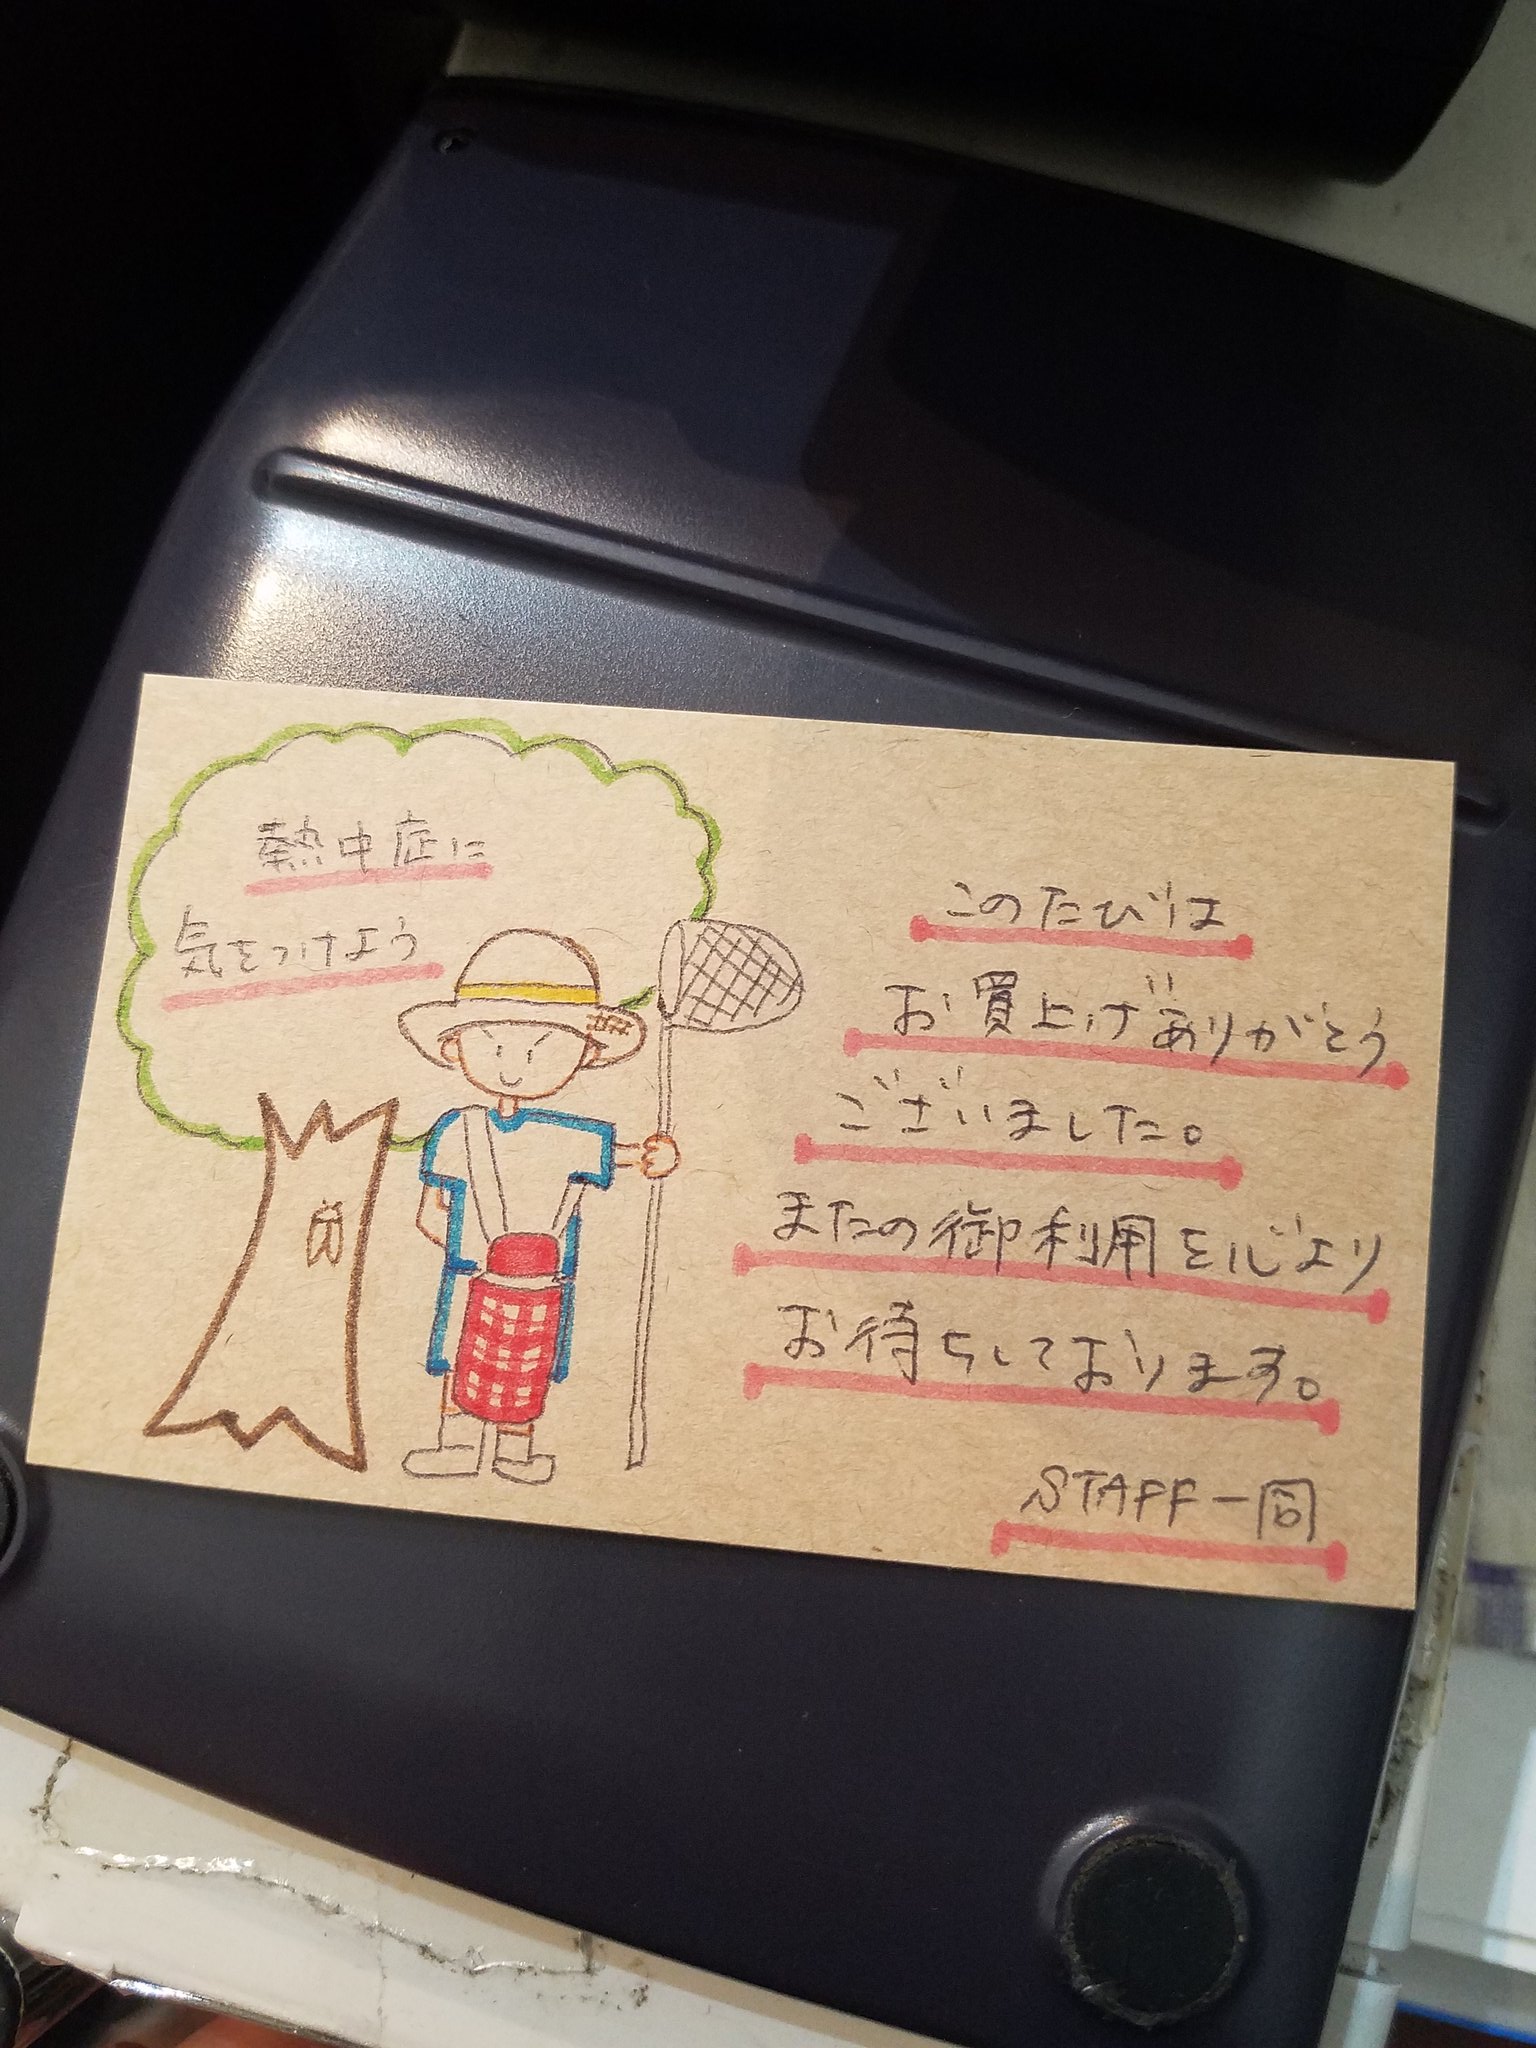 熱中症に
気をつけよう
このたびは
お買上げありがとう
ございました。
またの御利用を心より
お待ちしております。
STAFF一同